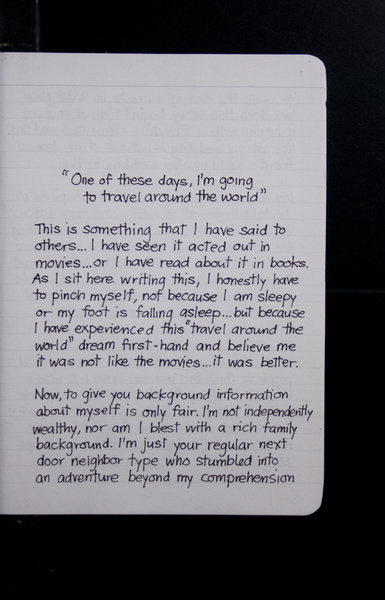 "One of these days, I'm going
to travel around the world"
This is something that I have said to
others... I have seen it acted out in
movies...or I have read about it in books.
As I sit here writing this, I honestly have
to pinch myself, not because I am sleepy
or my foot is falling asleep...but because
I have experienced this "travel around the
world" dream first-hand and believe me
it was not like the movies...it was better.
Now, to give you background information
about myself is only fair. I'm not independently
wealthy, nor am I blest with a rich family
background. I'm just your regular next
door neighbor type who stumbled into
an adventure beyond my comprehension